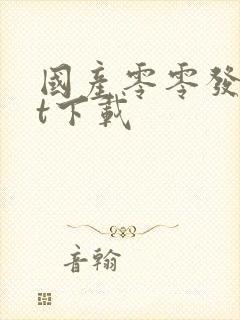 國產零零發
t下載
音翰